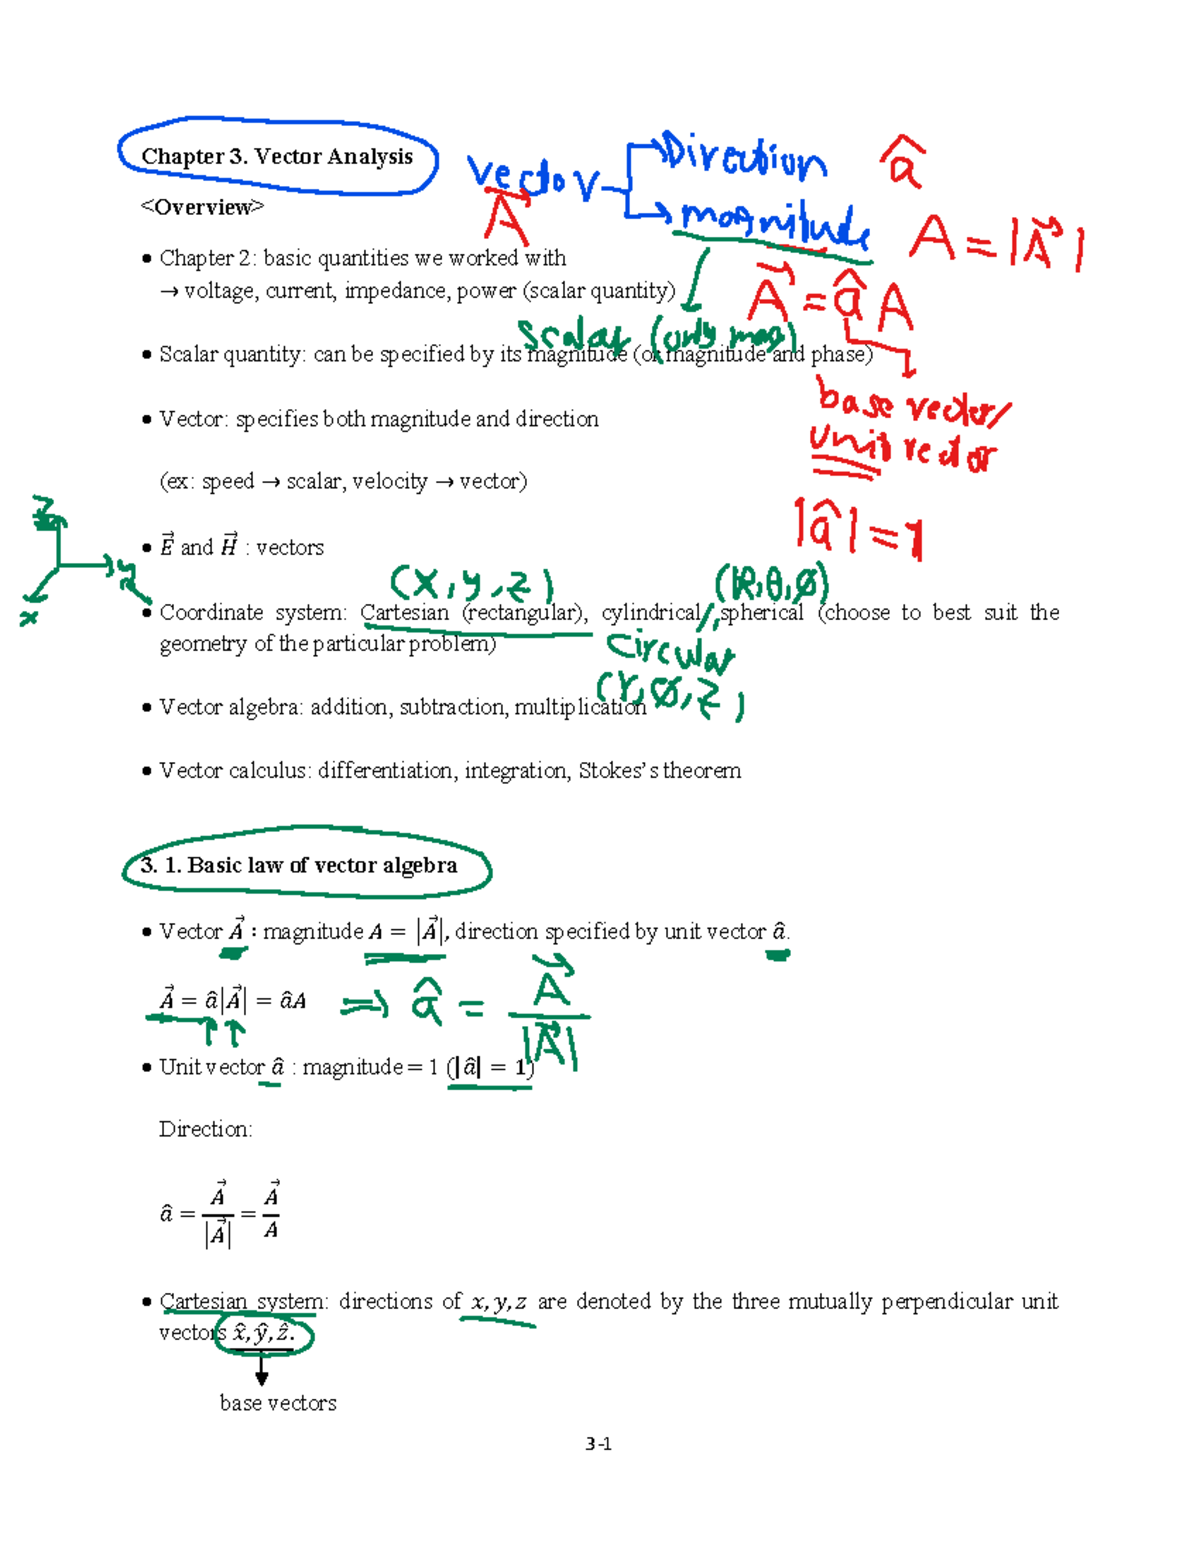 Chapter 3. Vector Analysis
vector
Direction
â
A⃗
magnitude
A = |A⃗|
<Overview>
● Chapter 2: basic quantities we worked with
→ voltage, current, impedance, power (scalar quantity)
A⃗ = â A
scalar (only mag)
● Scalar quantity: can be specified by its magnitude (or magnitude and phase)
base vector/
unit vector
● Vector: specifies both magnitude and direction
(ex: speed → scalar, velocity → vector)
|â| = 1
z
y
x
● E⃗ and H⃗ : vectors
(x, y, z)
(R, θ, ø)
● Coordinate system: Cartesian (rectangular), cylindrical/, spherical (choose to best suit the
geometry of the particular problem)
circular
(r, ø, z)
● Vector algebra: addition, subtraction, multiplication
● Vector calculus: differentiation, integration, Stokes’s theorem
3. 1. Basic law of vector algebra
● Vector A⃗ : magnitude A = |A⃗|, direction specified by unit vector â.
A⃗ = â|A⃗| = âA
⇒ â = A⃗ / |A⃗|
● Unit vector â : magnitude = 1 (|â| = 1)
Direction:
â = A⃗ / |A⃗| = A⃗ / A
● Cartesian system: directions of x, y, z are denoted by the three mutually perpendicular unit
vectors x̂, ŷ, ẑ.
base vectors
3-1